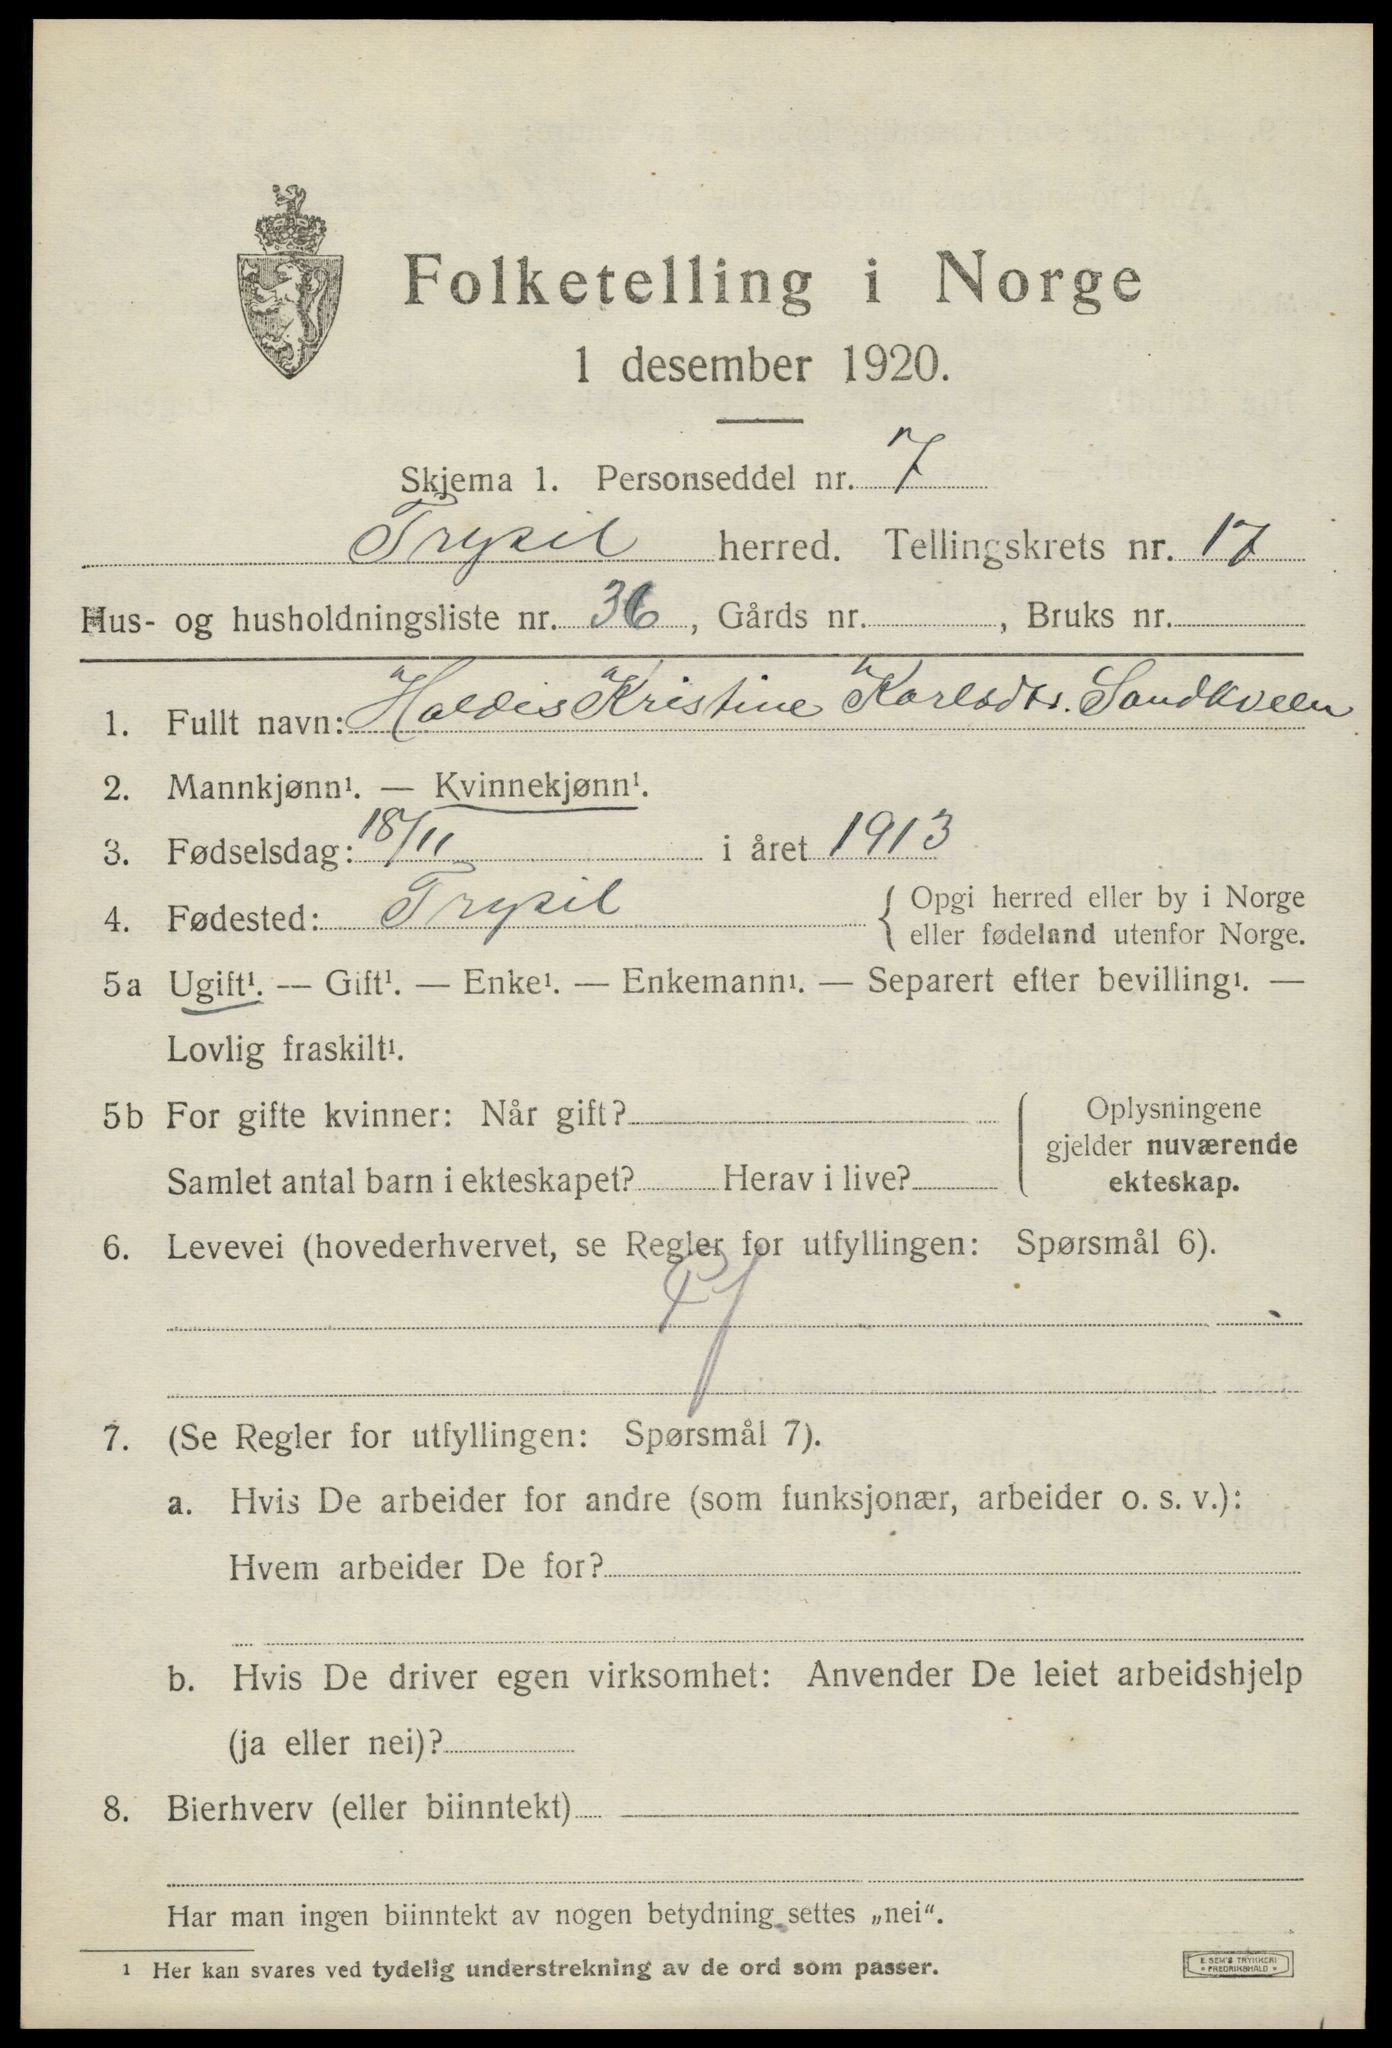 Folketelling i Norge
1 desember 1920.
Skjema 1. Personseddel nr. 7
Trysil herred. Tellingskrets nr. 17
Hus- og husholdningsliste nr. 36, Gårds nr. , Bruks nr.
1. Fullt navn: Haldis Kristine Karlsdtr. Sandkveen
2. Mannkjønn¹. — Kvinnekjønn¹.
3. Fødselsdag: 18/11 i året 1913
4. Fødested: Trysil { Opgi herred eller by i Norge
eller fødeland utenfor Norge.
5a Ugift¹. — Gift¹. — Enke¹. — Enkemann¹. — Separert efter bevilling¹. —
Lovlig fraskilt¹.
5b For gifte kvinner: Når gift?
Samlet antal barn i ekteskapet? Herav i live?
{ Oplysningene
gjelder nuværende
ekteskap.
6. Levevei (hovederhvervet, se Regler for utfyllingen: Spørsmål 6).
7. (Se Regler for utfyllingen: Spørsmål 7).
a. Hvis De arbeider for andre (som funksjonær, arbeider o. s. v.):
Hvem arbeider De for?
b. Hvis De driver egen virksomhet: Anvender De leiet arbeidshjelp
(ja eller nei)?
8. Bierhverv (eller biinntekt)
Har man ingen biinntekt av nogen betydning settes „nei“.
¹ Her kan svares ved tydelig understrekning av de ord som passer.
E. SEM'S TRYKKERI
* FREDRIKSHALD *